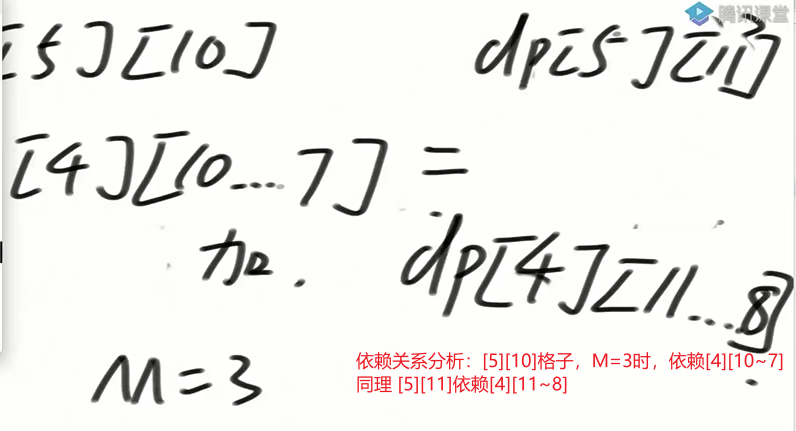 腾讯课堂
[5][10] dp[5][11]
[4][10...7] =
加. dp[4][11...8]
M=3
依赖关系分析：[5][10]格子，M=3时，依赖[4][10~7]
同理 [5][11]依赖[4][11~8]